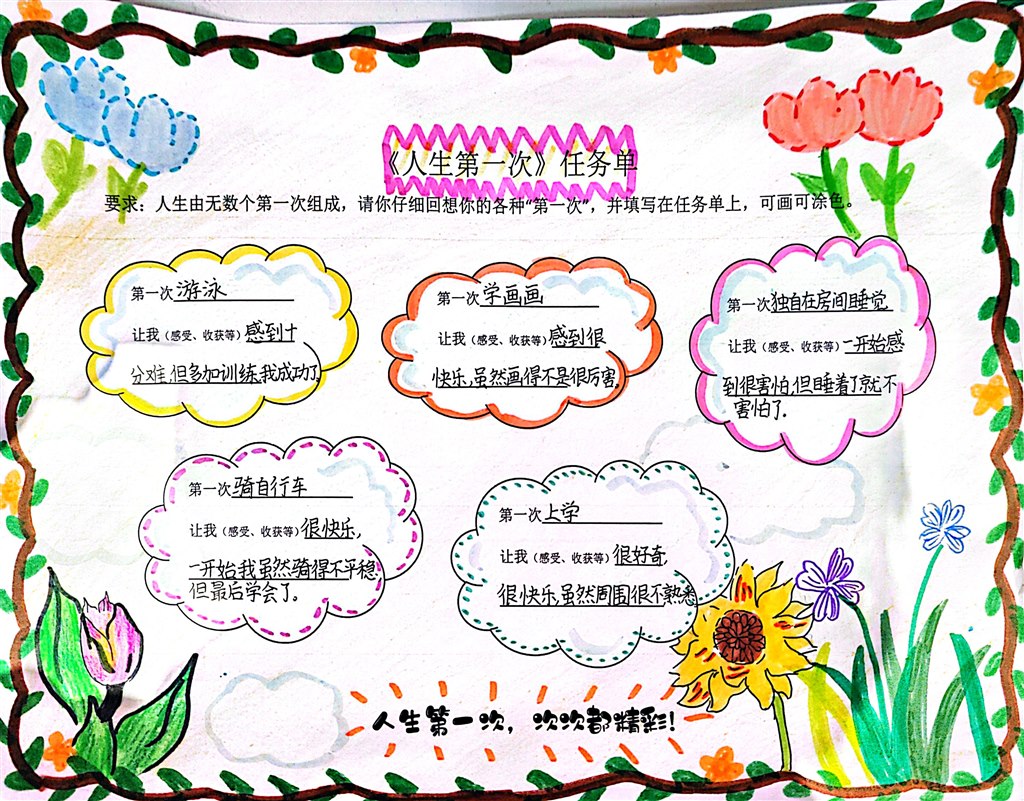 《人生第一次》任务单
要求：人生由无数个第一次组成，请你仔细回想你的各种“第一次”，并填写在任务单上，可画可涂色。
第一次游泳
让我（感受、收获等）感到十
分难,但多加训练,我成功了
第一次学画画
让我（感受、收获等）感到很
快乐,虽然画得不是很厉害,
第一次独自在房间睡觉
让我（感受、收获等）一开始感
到很害怕,但睡着了就不
害怕了.
第一次骑自行车
让我（感受、收获等）很快乐,
一开始我虽然骑得不平稳
但最后学会了.
第一次上学
让我（感受、收获等）很好奇,
很快乐,虽然周围很不熟悉
人生第一次，次次都精彩!